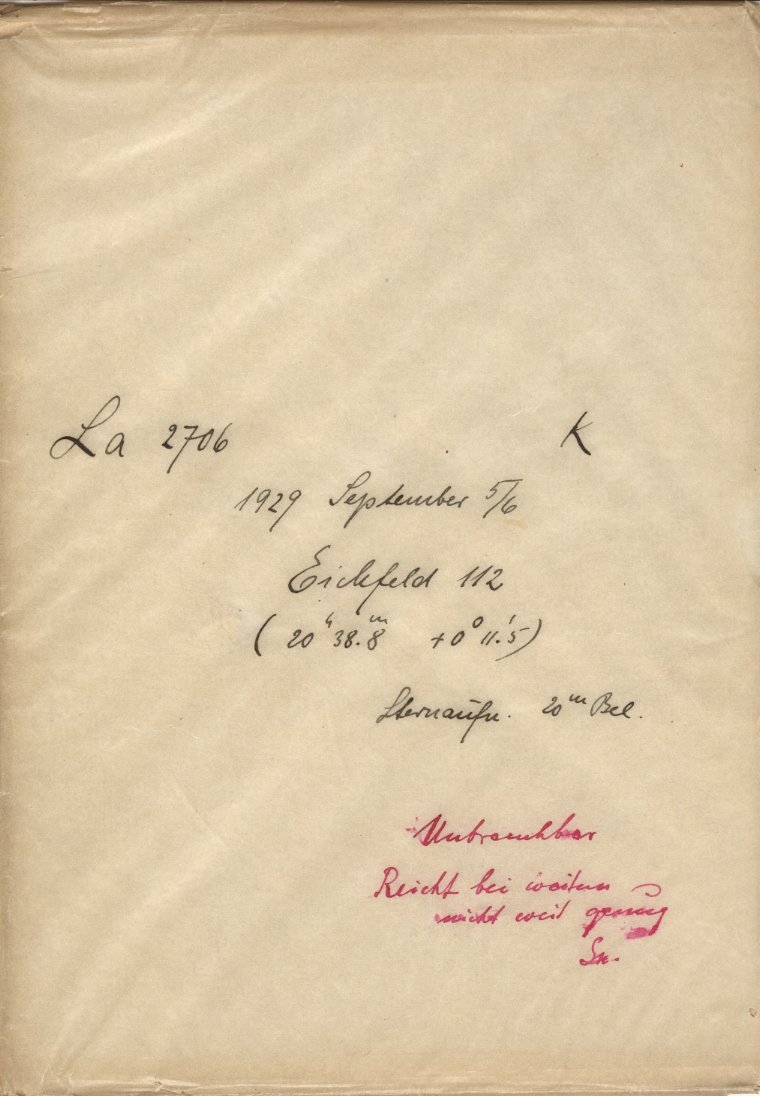 La 2706 K
1929 September 5/6
Eichfeld 112
( 20ʰ 38.8ᵐ +0° 11.'5)
Sternaufn. 20ᵐ Bel.
Unbrauchbar
Reicht bei weitem
nicht weit genug